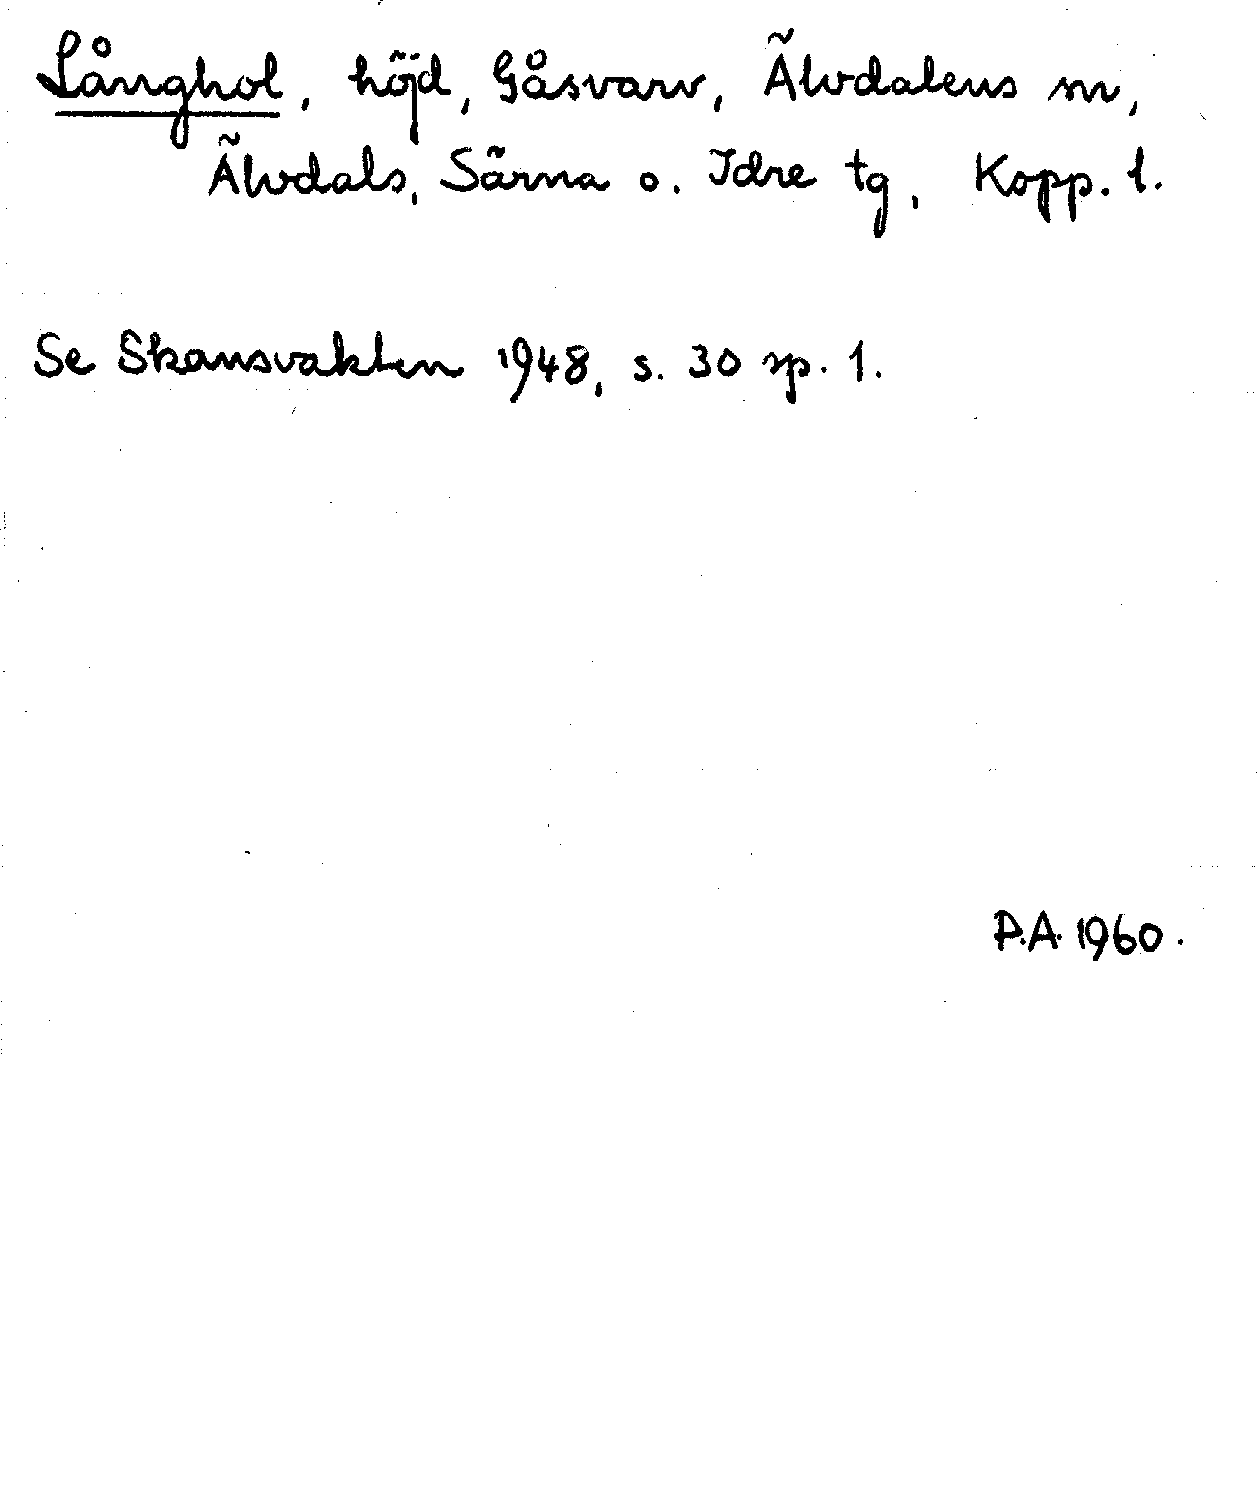 Långhol, höjd, Gåsvarv, Älvdalens sn,
Älvdals, Särna o. Idre tg, Kopp. l.
Se Skansvakten 1948, s. 30 sp. 1.
P.A. 1960.